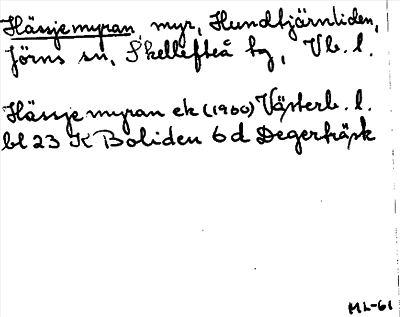 Hässjemyran, myr, Hundtjärnliden,
Jörns sn, Skellefteå kg, Vb. l.
Hässjemyran ek (1960) Västerb. l.
bl 23 K Boliden 6d Degerträsk
ML-61